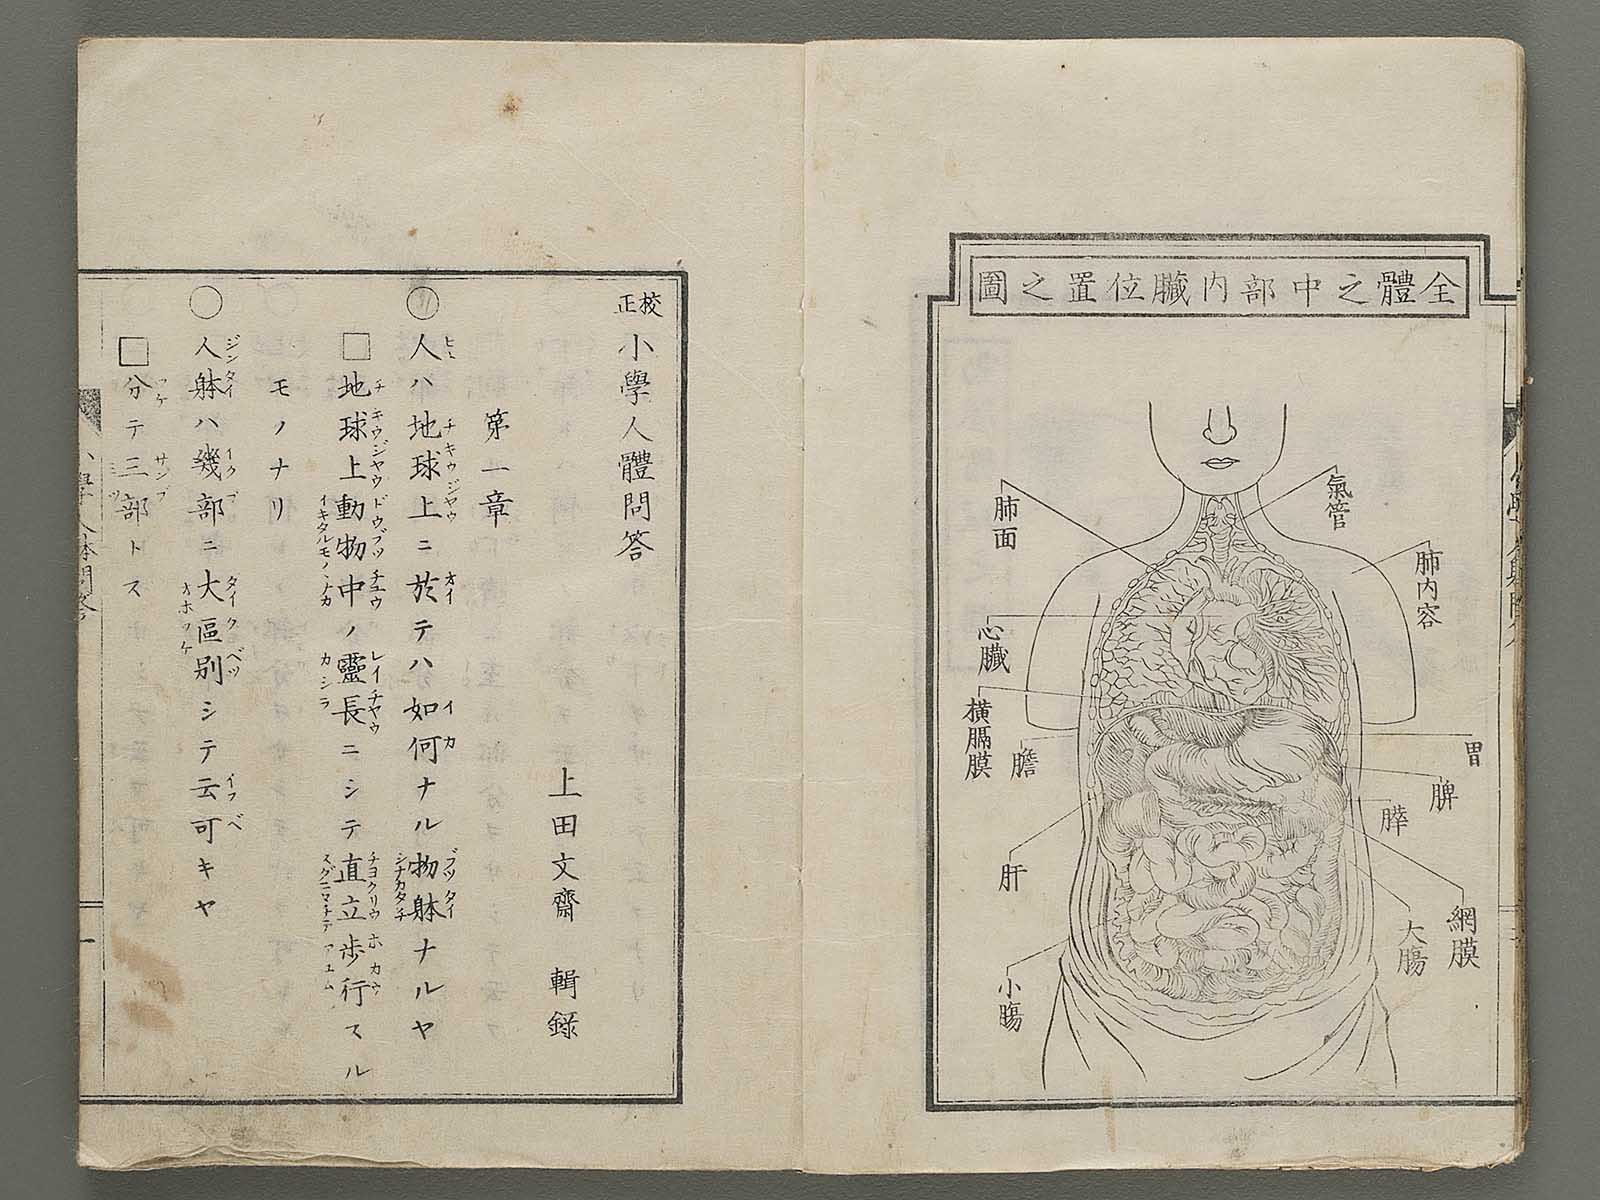 全體之中部内臓位置之圖
氣管
肺内容
胃
脾
膵
網膜
大膓
肺面
心臓
横膈膜
膽
肝
小膓
校正 小學人體問答
上田文齋 輯錄
第一章
○人ハ地球上ニ於テハ如何ナル物躰ナルヤ
□地球上動物中ノ靈長ニシテ直立歩行スル
モノナリ
○人躰ハ幾部ニ大區別シテ云可キヤ
□分テ三部トス
小學人体問答
一